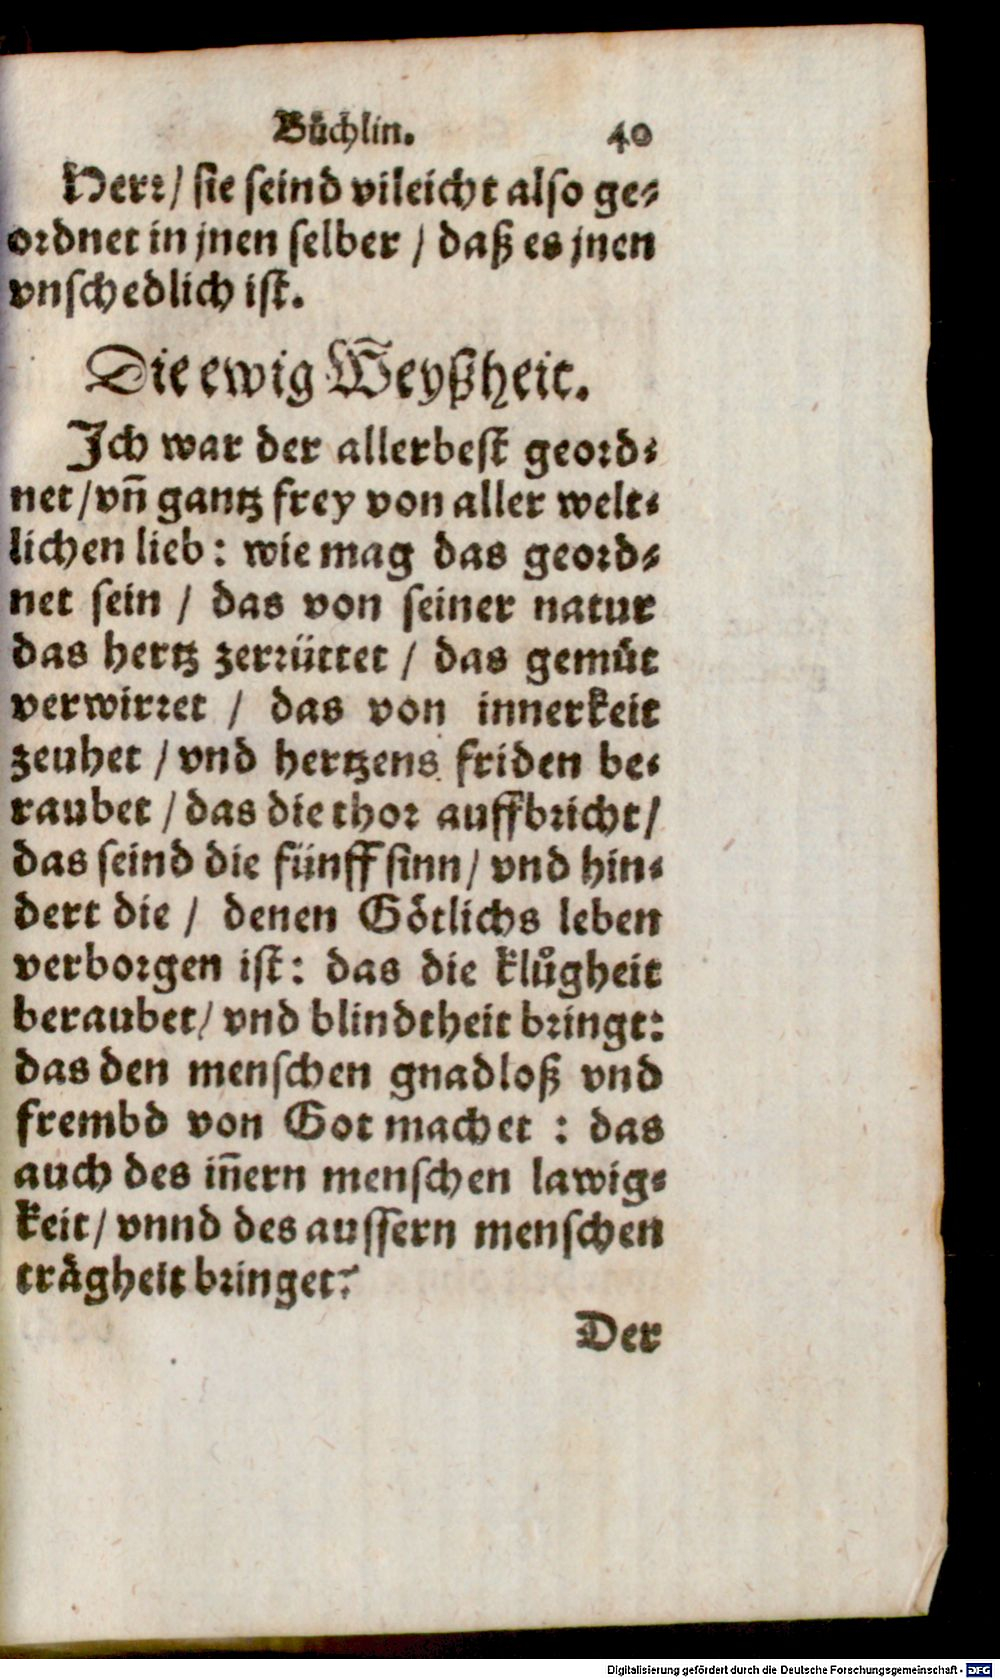 Bůchlin. 40
Herr/ sie seind vileicht also ge-
ordnet in jnen selber / daß es jnen
vnschedlich ist.
Die ewig Weyßheit.
Ich war der allerbest geord-
net/vñ gantz frey von aller welt-
lichen lieb: wie mag das geord-
net sein / das von seiner natur
das hertz zerrüttet / das gemůt
verwirret / das von innerkeit
zeuhet / vnd hertzens friden be-
raubet / das die thor auffbricht/
das seind die fünff sinn/ vnd hin-
dert die / denen Götlichs leben
verborgen ist: das die klůgheit
beraubet/ vnd blindtheit bringt:
das den menschen gnadloß vnd
frembd von Got machet : das
auch des iñern menschen lawig-
keit/ vnnd des aussern menschen
trägheit bringet?
Der
Digitalisierung gefördert durch die Deutsche Forschungsgemeinschaft - DFG